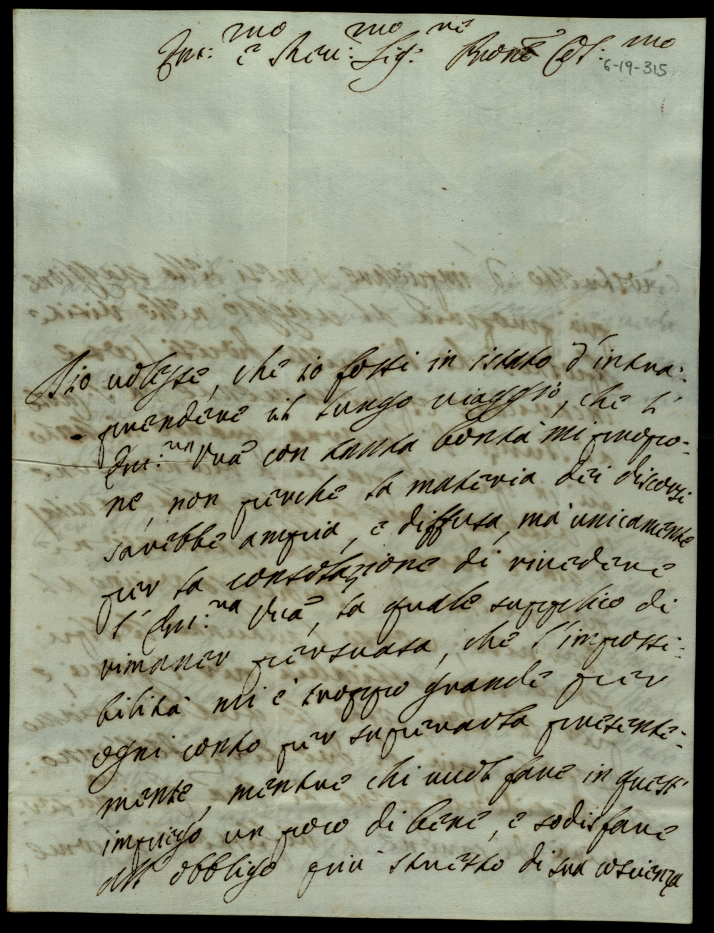 Em:mo e Rev:mo Sig:re Prone Col:mo
6-19-315
Dio volesse, che io fossi in istato d'intra:
prendere il lungo viaggio, che l'
Em:za Vra con tanta bontà mi propo-
ne, non perche la materia dei discorsi
sarebbe ampia, e diffusa, mà unicamente
per la consolazione di rivedere
l'Em:za Vra, la quale supplico di
rimaner persuasa, che l'impossi:
bilità mi è troppo grande per
ogni conto per superarla presente:
mente, mentre chi vuol fare in questi
impiego un poco di bene, e sodisfare
all'obbligo più stretto di sua coscienza